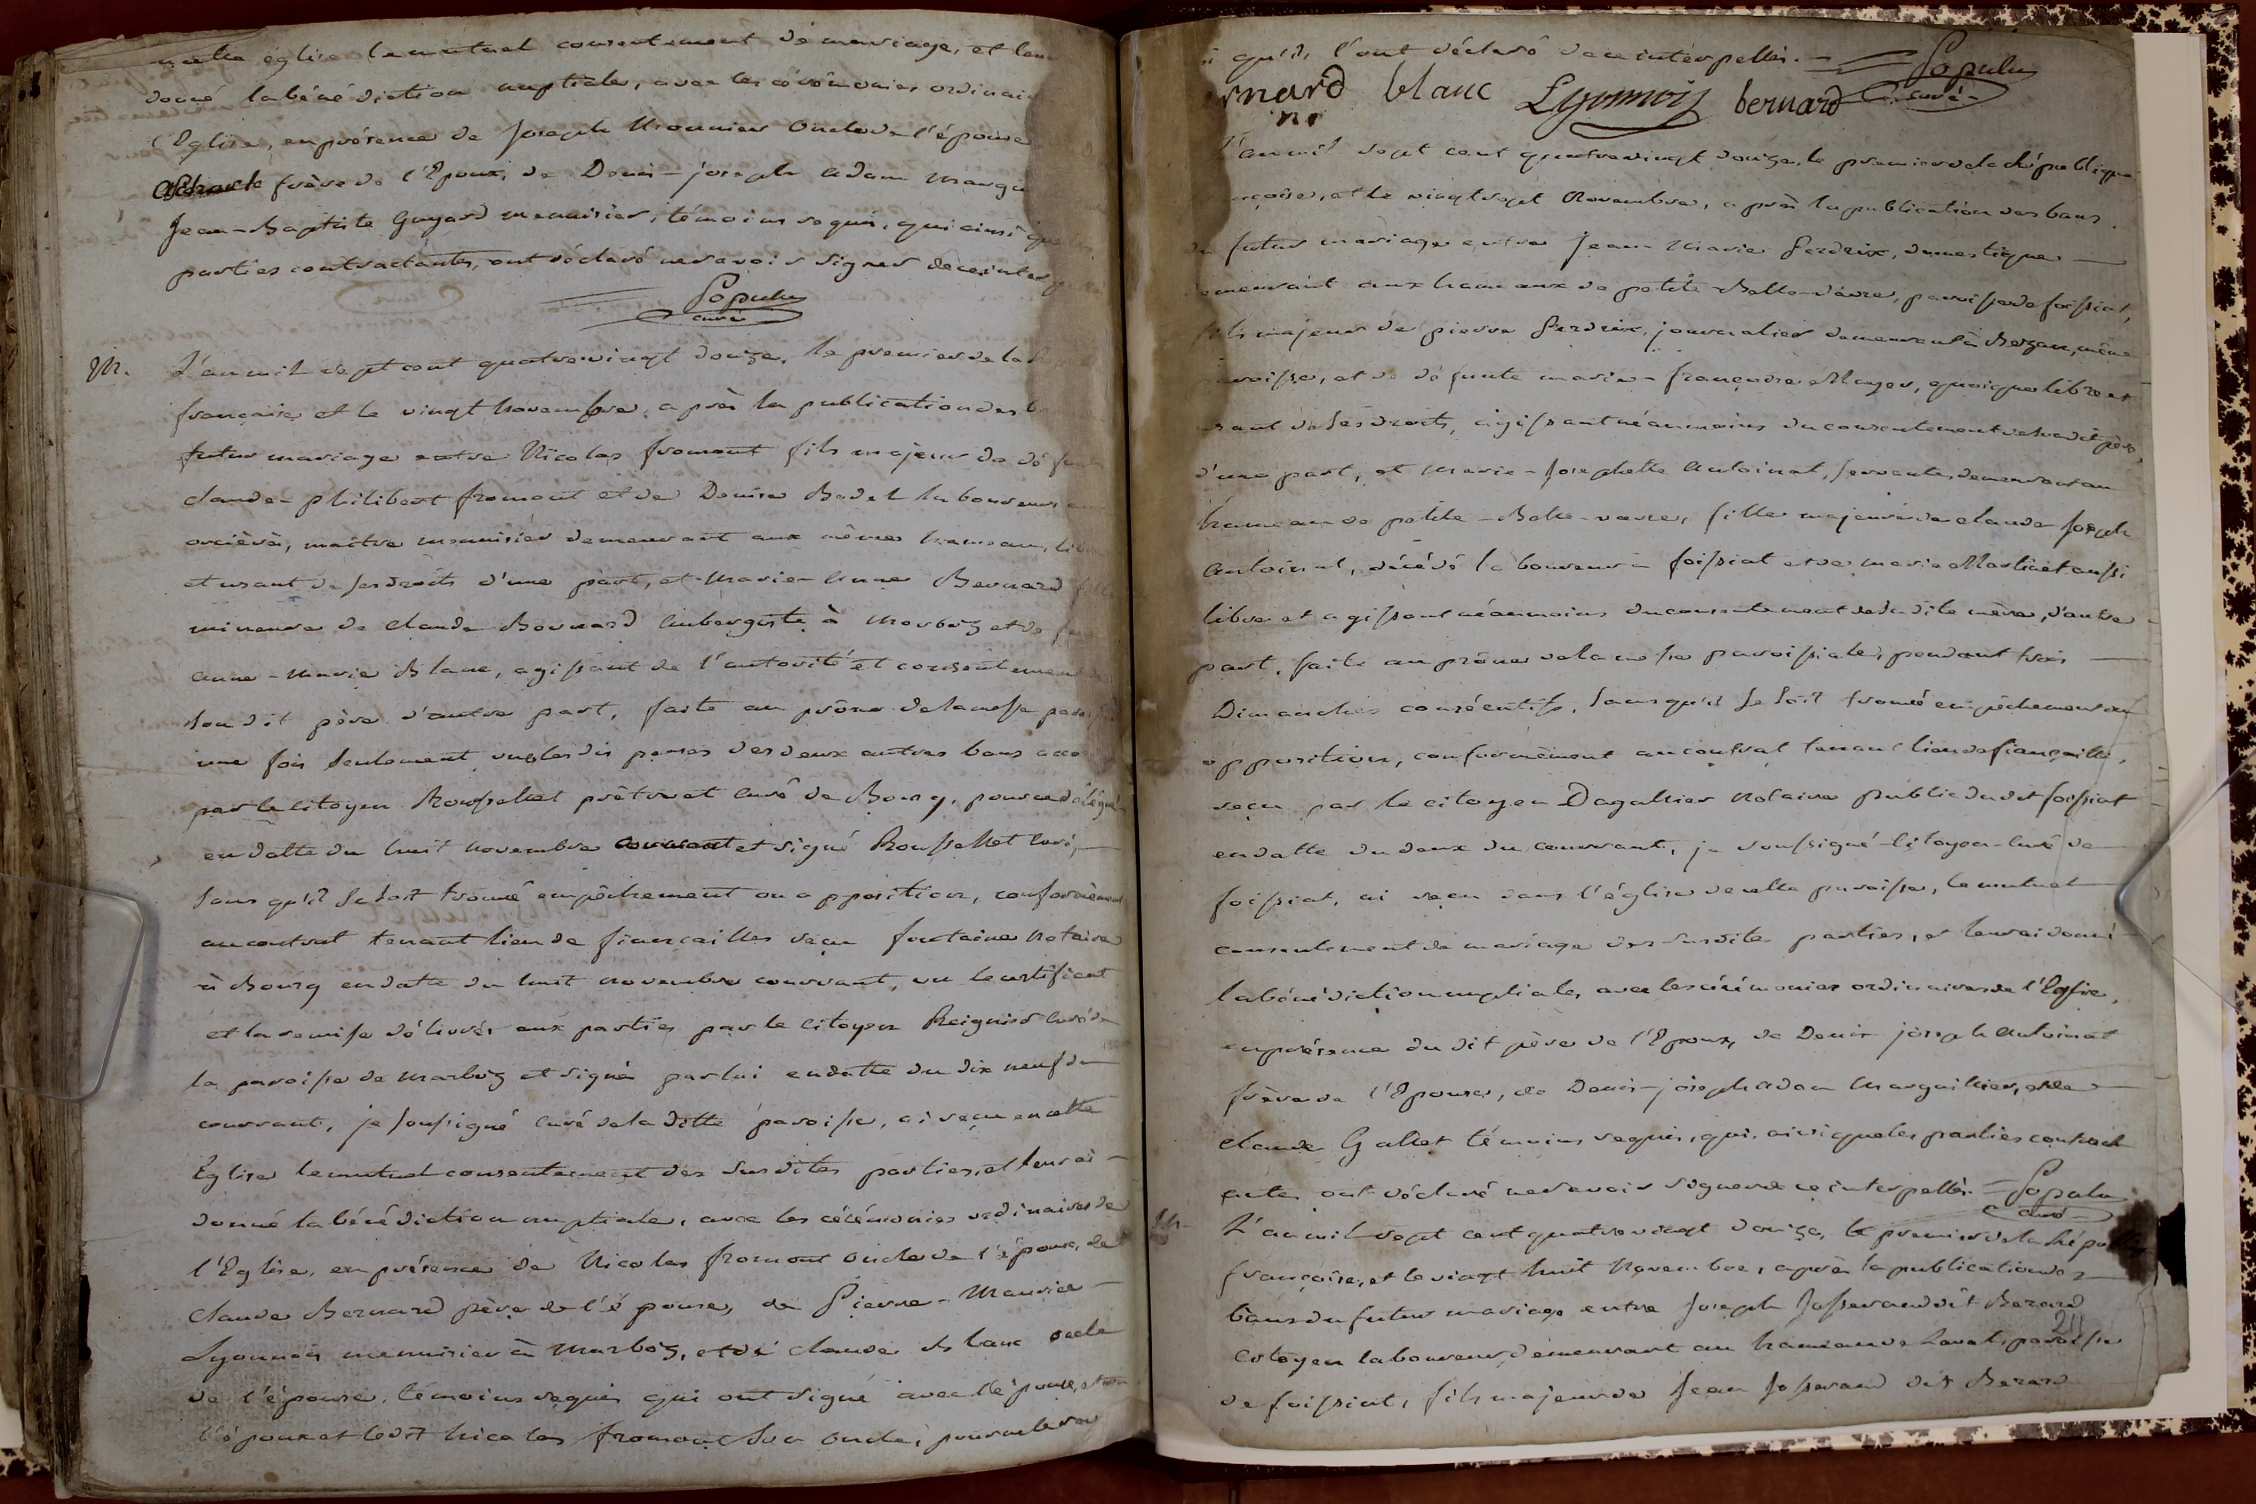 cette église le mutuel consentement de mariage, et leur
donné la bénédiction nuptiale, avec les cérémonies ordinai
l'Eglise, en présence de Joseph Monnier oncle de l'épouse
frère de l'Epoux, de Denis-joseph adam margu
Jean-Baptiste Guyard menuisier, témoins requis, qui ainsi que les
parties contractantes, ont déclaré ne savoir signer de ce inter
Populus
curé
M.
L'an mil sept cent quatre vingt douze, le premier de la
françoise et le vingt novembre, après la publication des b
futur mariage entre Nicolas fromont fils majeur de défunt
claude-philibert fromont et de Denise Badel laboureurs
maître menuisier demeurant aux mêmes hameau, lib
et usant de ses droits d'une part, et Marie-Anne Bernard fille
mineure de claude Bernard aubergiste à Marboz et de
anne-Marie Blanc, agissant de l'autorité et consentement
son dit père d'autre part, faite au prône de la messe paroi
une fois seulement vu les dis penses des deux autres bans acco
par le citoyen Rousselet prêtre et curé de Bourg, pour ce délégué
en datte du huit novembre courant et signé Rousselet curé,
sans qu'il se soit trouvé empêchement ou opposition, conformément
au contrat tenant lieu de fiançailles reçu fontaine Notaire
à Bourg en datte du huit novembre courrant, vu le certificat
et la remise délivrés aux parties par le citoyen Reignier curé de
la paroisse de Marboz et signé par lui en datte du dix neuf du
courrant, je soussigné curé de la ditte paroisse, ai reçu en cette
Eglise le mutuel consentement des susdites parties, et leur ai
donné la bénédiction nuptiale, avec les cérémonies ordinaires de
l'Eglise, en présence de Nicolas fromont oncle de l'époux, de
Claude Bernard père de l'épouse, de Pierre-Maurice
Lyonnois menuisier à Marboz, et de claude blanc oncle
de l'épouse, témoins requis qui ont signé avec l'épouse, et non
l'époux et ledit Nicolas fromont son oncle, pour ne le savoir
qu'il l'ont déclaré de ce interpellés.
Populus
curé
rnard blanc Lyonnois bernard
L'an mil sept cent quatre vingt douze, le premier de la République
nçoise, et le vingt sept Novembre, après la publication des bans
du futur mariage entre Jean-Marie Perdrix, domestique
demeurant aux hameaux de petite Belle-vavre, paroisse de foissiat,
fils majeur de pierre Perdrix, journalier demeurant à Bezan, même
paroisse, et de défunte marie-françoise, quoique libre et
usant de ses droits, agissant néanmoins du consentement de sondit père,
d'une part, et Marie-Josephette Antoinat, servante, demeurant au
hameau de petite-Belle-vavre, fille majeure de claude Joseph
Antoinat, décédé laboureur à foissiat et de marie Martinet aussi
libre et agissant néanmoins du consentement de sa dite mère, d'autre
part, faite au prône de la messe paroissiale, pendant trois
Dimanches consécutifs, sans qu'il se soit trouvé empêchement ou
opposition, conformément au contrat tenant lieu de fiançailles,
reçu par le citoyen Dagallier Notaire public dudit foissiat
en datte du deux du courrant, je soussigné citoyen-curé de
foissiat, ai reçu dans l'église de cette paroisse, le mutuel
consentement de mariage des susdites parties, et leur ai donné
la bénédiction nuptiale, avec les cérémonies ordinaires de l'Eglise,
en présence du dit père de l'Epoux, de Denis joseph Antoinat
frère de l'Epouse, de Denis-joseph adam Marguillier, et de
claude Gallet témoins requis, qui, ainsi que les parties contract
antes ont déclaré ne savoir signer de ce interpellés.
Populus
curé
L'an mil sept cent quatre vingt douze, le premier de la Répu
françoise, et le vingt huit Novembre, après la publication des
bans du futur mariage entre Joseph Josserand dit Berard
citoyen laboureur, demeurant au hameau de Laval, paroisse
de foissiat, fils majeur de Jean Josserand dit Berard